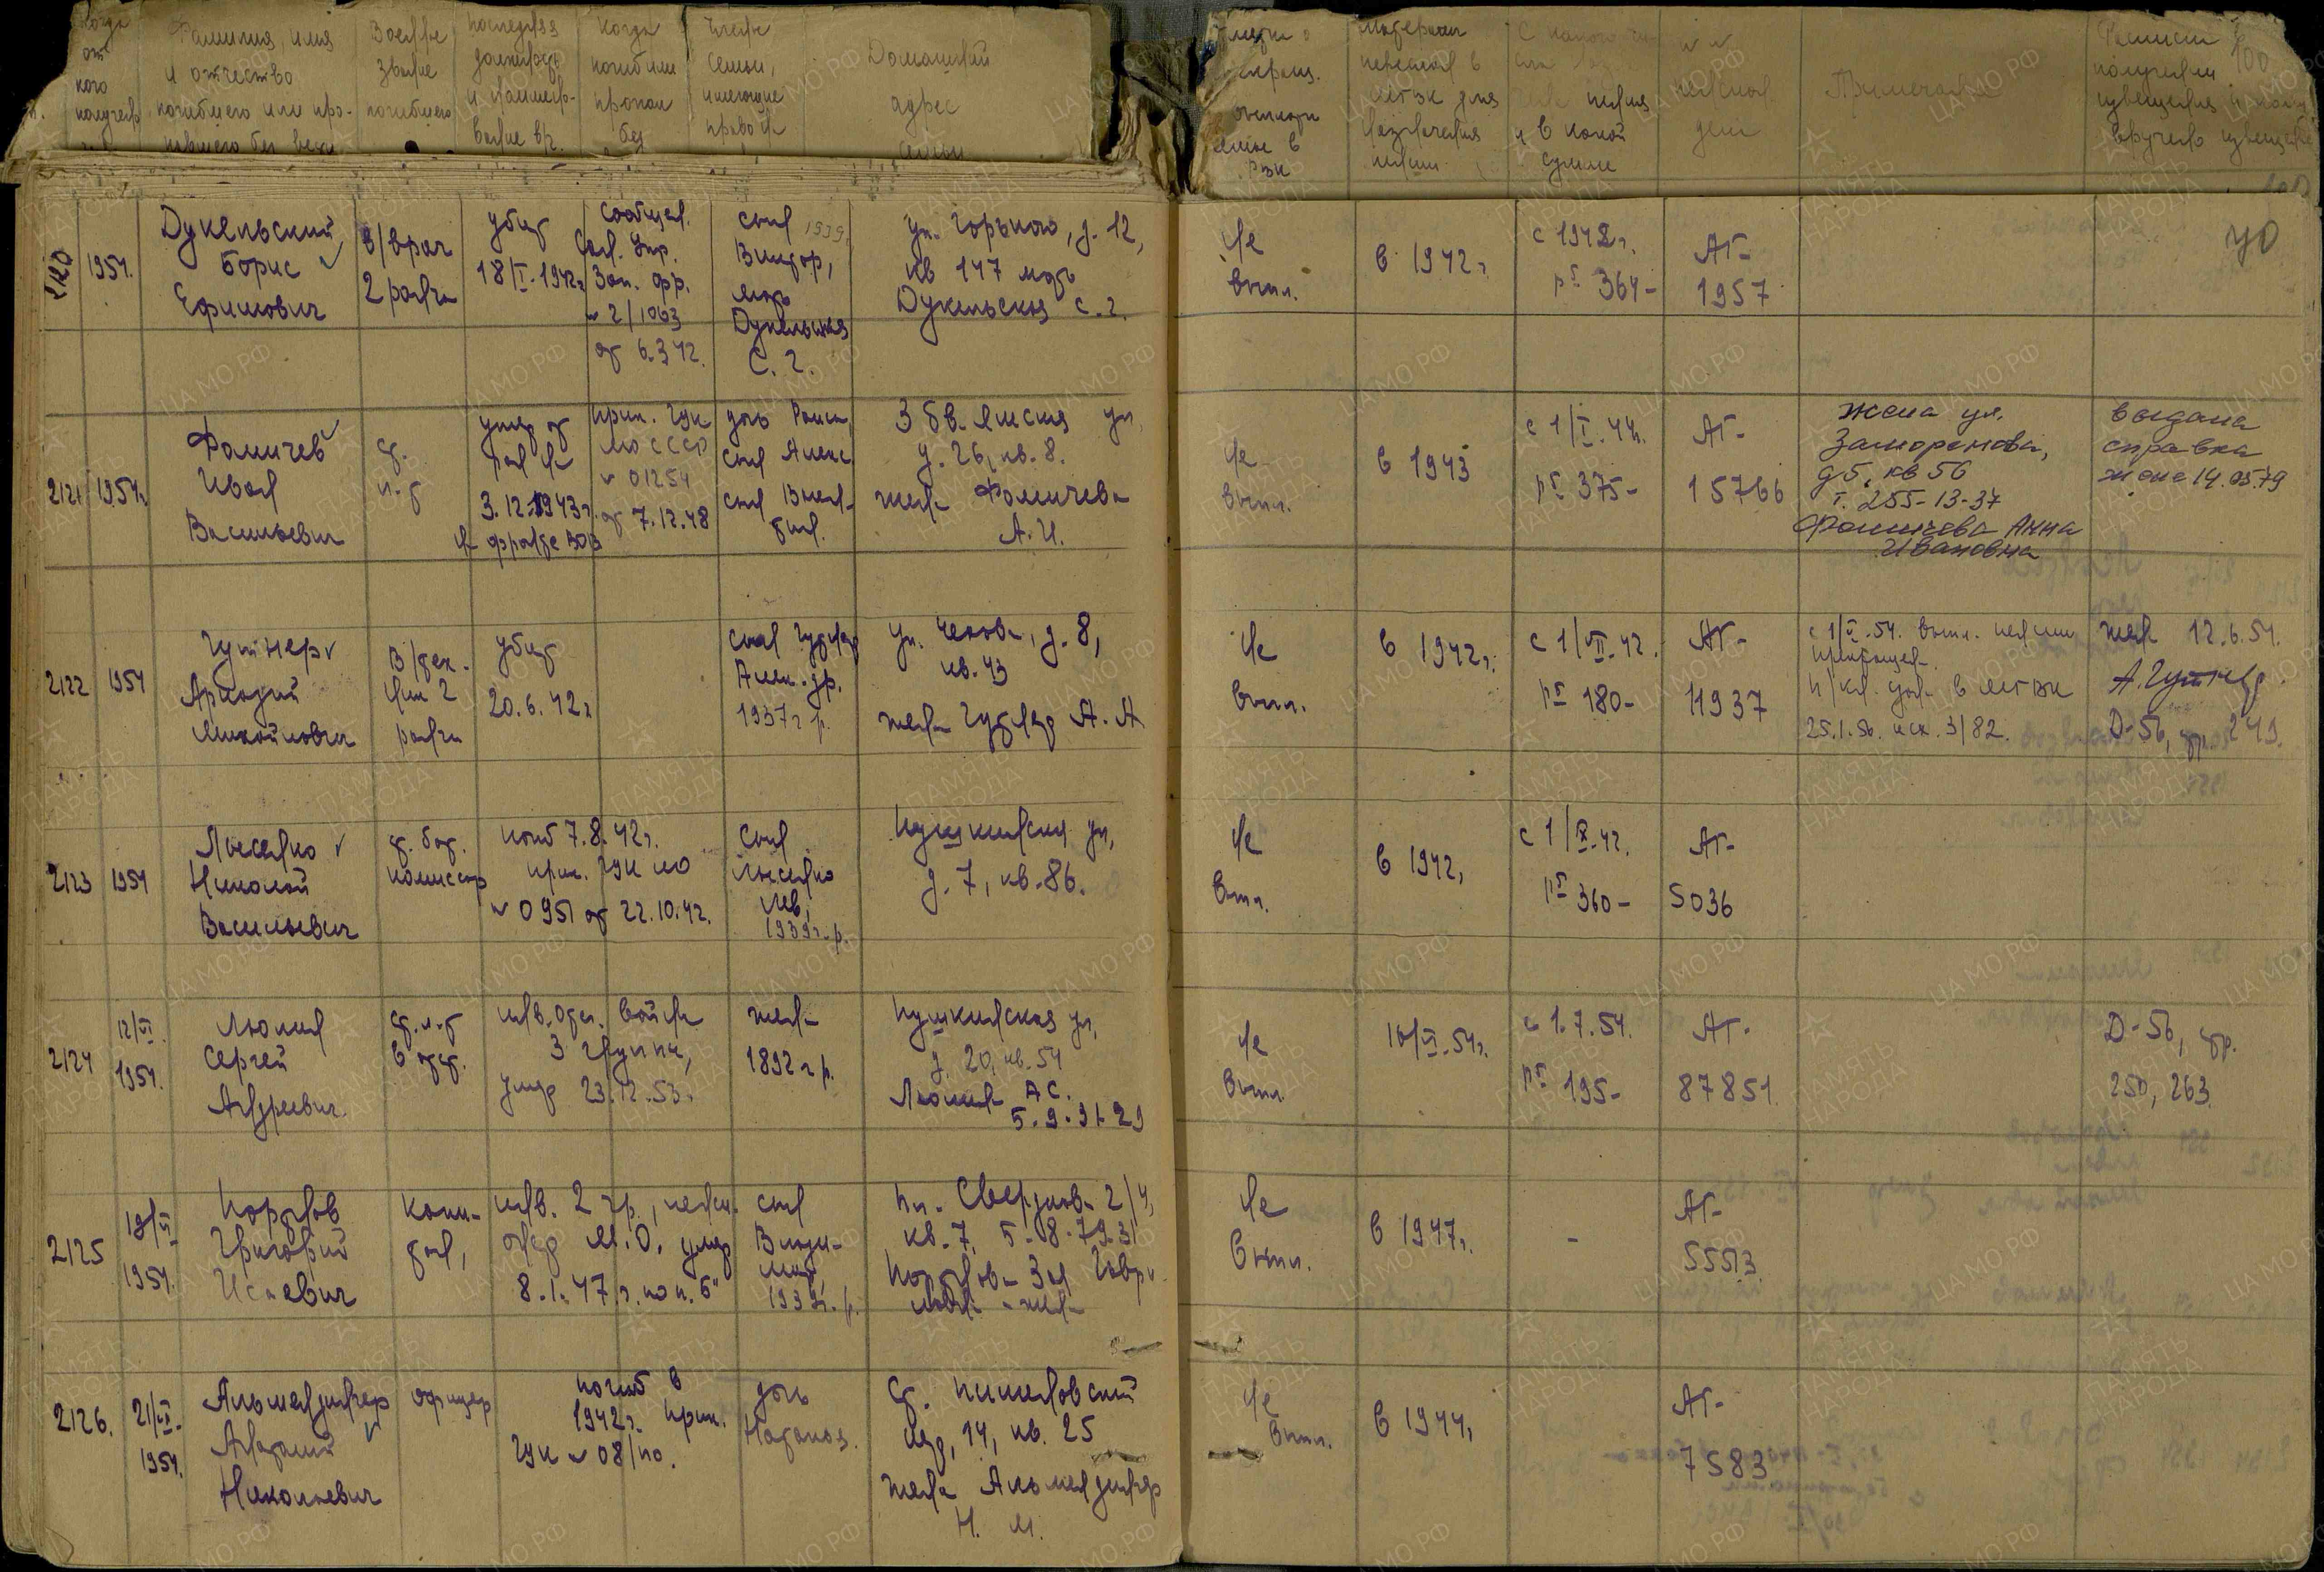 Когда
от
кого
получено
Фамилия, имя
и отчество
погибшего или про-
павшего без вести
Воен.
звание
погибшего
последняя
должность
и наимено-
вание в/ч.
Когда
погиб или
пропал
без
Члены
семьи,
имеющие
право на
Домашний
адрес
семьи
в
РВК
материал
передан в
для
назначения
пенсии
С какого
пенсия
и в какой
сумме
№№
пенсион.
дела
Примечание
Росписи
получении
извещения и кому
вручено извещение
100
2120
1954.
Дукельский
Борис
Ефимович
в/врач
2 ранга
убит
18/I-1942г
Сообщен.
Сан. Упр.
Зап. фр.
№ 2/1063
от 6.3.42.
сын 1939г.
Виктор,
мать
Дукельская
С. Г.
ул. Горького, д. 12,
кв 147 мать
Дукельская С. Г.
Не
выпл.
в 1942г.
с 1942г.
р. 364-
АГ-
1957
40
2121
1954г.
Фомичев
Иван
Васильевич
ст.
л-т
умер от
ран на
3.12.1943г.
на фронте ВОВ
прик. ГУК
МО СССР
№ 01254
от 7.12.48
дочь Раиса,
сын Алекс.
сын Вален-
тин.
3 бв. Ямская ул,
д. 26, кв. 8.
жена Фомичева
А. И.
Не
выпл.
в 1943
с 1/I.44г.
р. 375-
АГ-
15766
Жена ул.
Заморенова,
д 5, кв 56
т. 255-13-37
Фомичева Анна
Ивановна
выдана
справка
жене 14.03.79
2122
1954
Гутнер
Аркадий
Михайлович
В/тех-
ник 2
ранга
убит
20.6.42г
сын Гутнер
Алек-др.
1937г. р.
ул. Чехова, д. 8,
кв. 43
жена Гутнер А. А
Не
выпл.
в 1942г.
с 1/VII-42.
р. 180-
АГ-
11937
с 1/V-54. выпл. пенсии
прекращен.
25.1.56. исх. 3/82.
жена 12.6.54.
А. Гутнер.
D-56, стр. 249.
2123
1954
Лысенко
Николай
Васильевич
ст. бат.
комиссар
погиб 7.8.42г.
прик. ГУК МО
№ 0951 от 22.10.42.
сын
Лысенко
Лев,
1939г.р.
Пушкинская ул,
д. 7, кв. 86.
Не
выпл.
в 1942,
с 1/X-42.
р. 360-
АГ-
5036
2124
12/VI
1954.
Люлин
Сергей
Андреевич.
ст. л-т
в отст.
инв. Отеч. войны
3 группы,
умер 23.12.53г
жена
1892г р.
Пушкинская ул,
д. 20, кв. 54
Люлина А С.
5-9-31-29
Не
выпл.
10/VI-54г.
с 1.7.54.
р. 195-
АГ-
87851.
D-56, стр.
250, 263.
2125
18/VI
1954.
Портнов
Григорий
Исаевич
Капи-
тан,
инв. 2 гр., пенси-
онер М.О. умер
8.1.47г. по п. "б"
сын
Влади-
мир,
1939г. р.
Пл. Свердлова 2/4,
кв. 7. 5-8-79-31
Портнова Зоя Гаври-
ловна - жена
Не
выпл.
в 1947г.
-
АГ-
5553
2126.
21/VI-
1954.
Альмендингер
Анатолий
Николаевич
офицер
погиб в
1942г. прик.
ГУК № 08/по.
дочь
Наталия.
Ст. Пименовский
пер, 14, кв. 25
жена Альмендингер
Н. М.
Не
выпл.
в 1944,
АГ-
7583